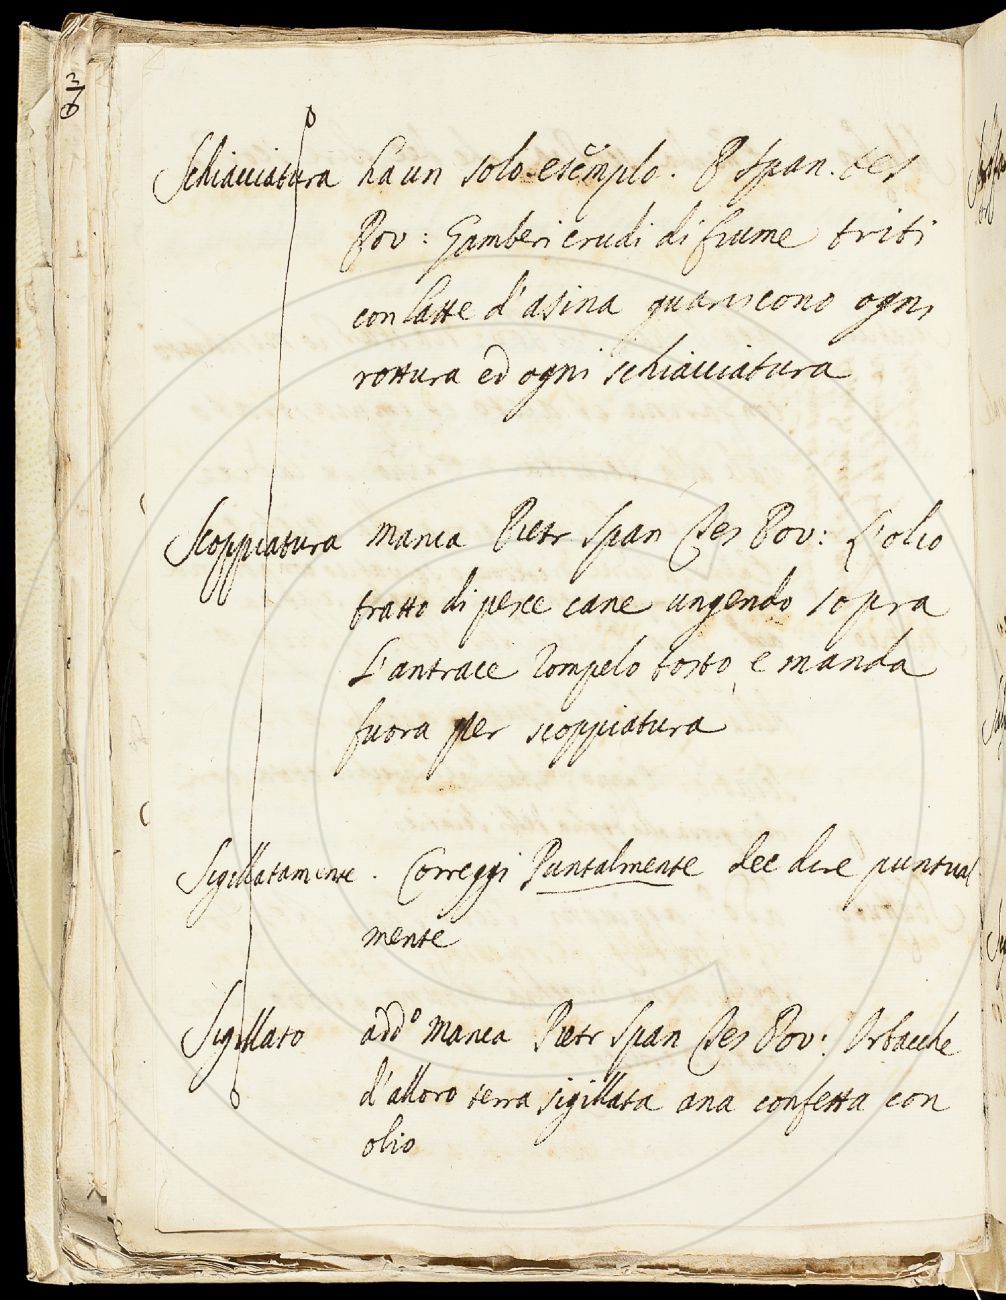 Schiacciatura ha un solo esemplo. P Span. Tes
Pov: Gamberi crudi di fiume triti
con latte d'asina guariscono ogni
rottura ed ogni schiacciatura
Scoppiatura manca Pietr Span Tes Pov: L'olio
tratto di pesce cane ungendo sopra
L'antrace rompelo tosto, e manda
fuora per scoppiatura
Sigillatamente. Correggi Puntalmente dee dire puntual
mente
Sigillato add.º manca Pietr Span Tes Pov: Orbacche
d'alloro terra sigillata ana confetta con
olio